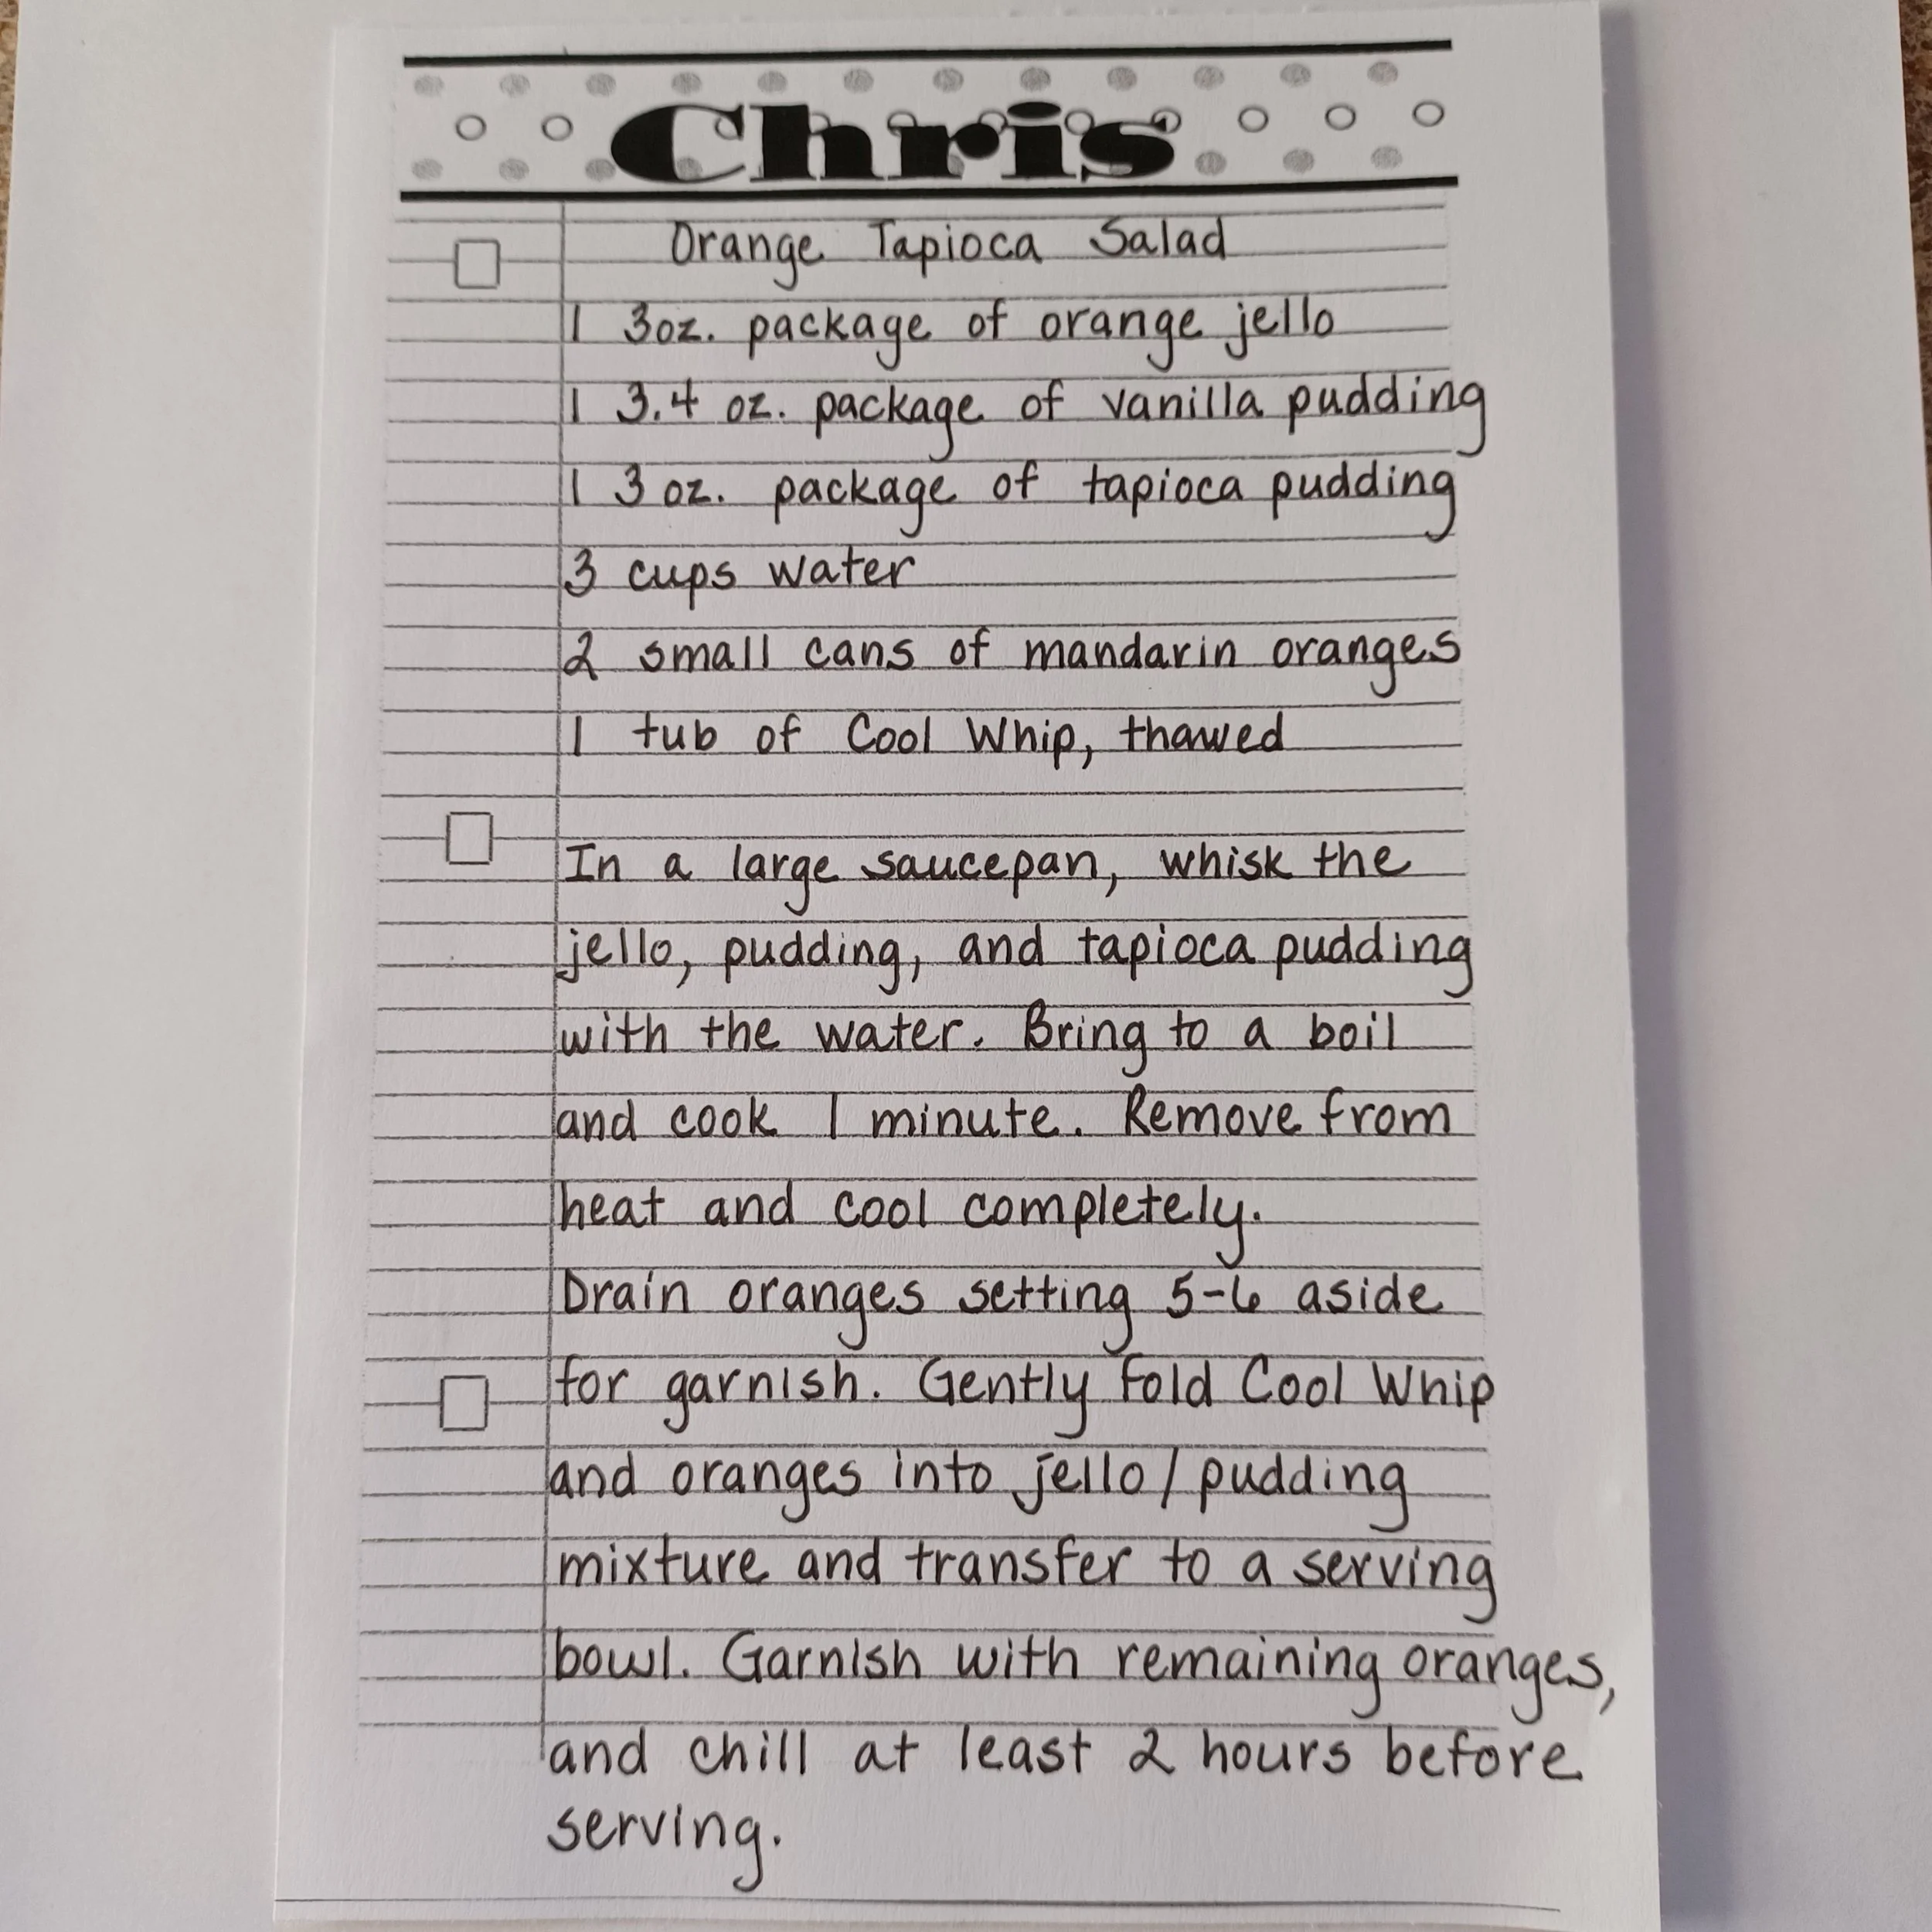 Chris
Orange Tapioca Salad
1 3oz. package of orange jello
1 3.4 oz. package of vanilla pudding
1 3 oz. package of tapioca pudding
3 cups water
2 small cans of mandarin oranges
1 tub of Cool Whip, thawed
In a large saucepan, whisk the
jello, pudding, and tapioca pudding
with the water. Bring to a boil
and cook 1 minute. Remove from
heat and cool completely.
Drain oranges setting 5-6 aside
for garnish. Gently fold Cool Whip
and oranges into jello/pudding
mixture and transfer to a serving
bowl. Garnish with remaining oranges,
and chill at least 2 hours before
serving.